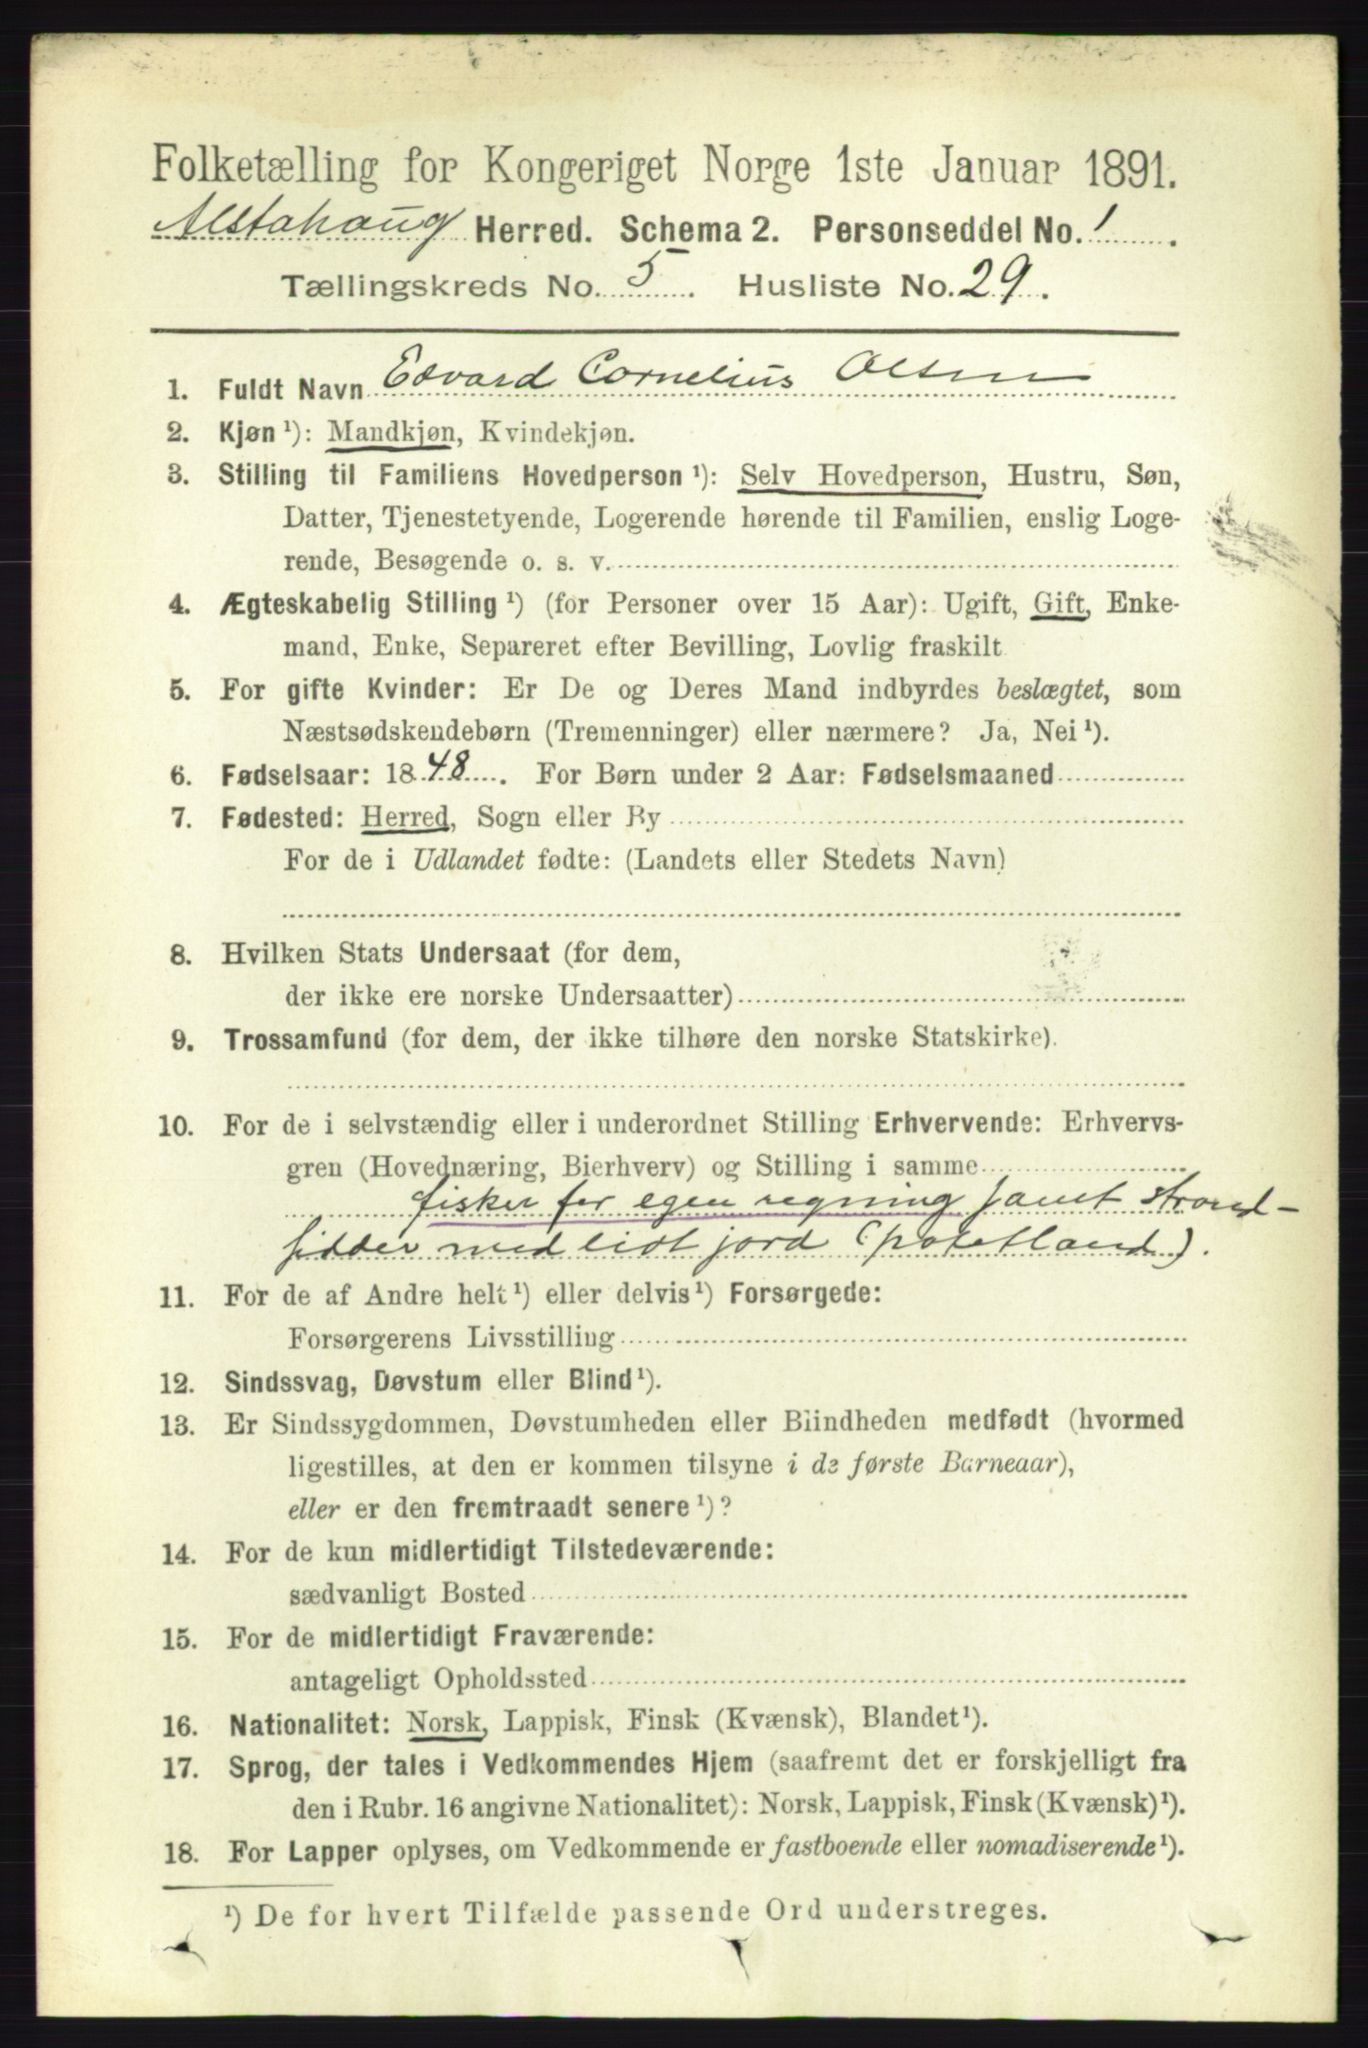 Folketælling for Kongeriget Norge 1ste Januar 1891.
Alstahaug Herred. Schema 2. Personseddel No. 1.
Tællingskreds No. 5. Husliste No. 29.
1. Fuldt Navn Edvard Cornelius Olsen
2. Kjøn ¹): Mandkjøn, Kvindekjøn.
3. Stilling til Familiens Hovedperson ¹): Selv Hovedperson, Hustru, Søn,
Datter, Tjenestetyende, Logerende hørende til Familien, enslig Loge-
rende, Besøgende o. s. v.
4. Ægteskabelig Stilling ¹) (for Personer over 15 Aar): Ugift, Gift, Enke-
mand, Enke, Separeret efter Bevilling, Lovlig fraskilt
5. For gifte Kvinder: Er De og Deres Mand indbyrdes beslægtet, som
Næstsødskendebørn (Tremenninger) eller nærmere? Ja, Nei ¹).
6. Fødselsaar: 1848. For Børn under 2 Aar: Fødselsmaaned
7. Fødested: Herred, Sogn eller By
For de i Udlandet fødte: (Landets eller Stedets Navn)
8. Hvilken Stats Undersaat (for dem,
der ikke ere norske Undersaatter)
9. Trossamfund (for dem, der ikke tilhøre den norske Statskirke).
10. For de i selvstændig eller i underordnet Stilling Erhvervende: Erhvervs-
gren (Hovednæring, Bierhverv) og Stilling i samme
fisker for egen regning samt strand-
sidder med lidt jord (potetland).
11. For de af Andre helt ¹) eller delvis ¹) Forsørgede:
Forsørgerens Livsstilling
12. Sindssvag, Døvstum eller Blind ¹).
13. Er Sindssygdommen, Døvstumheden eller Blindheden medfødt (hvormed
ligestilles, at den er kommen tilsyne i de første Barneaar),
eller er den fremtraadt senere ¹)?
14. For de kun midlertidigt Tilstedeværende:
sædvanligt Bosted
15. For de midlertidigt Fraværende:
antageligt Opholdssted
16. Nationalitet: Norsk, Lappisk, Finsk (Kvænsk), Blandet ¹).
17. Sprog, der tales i Vedkommendes Hjem (saafremt det er forskjelligt fra
den i Rubr. 16 angivne Nationalitet): Norsk, Lappisk, Finsk (Kvænsk) ¹).
18. For Lapper oplyses, om Vedkommende er fastboende eller nomadiserende ¹).
¹) De for hvert Tilfælde passende Ord understreges.